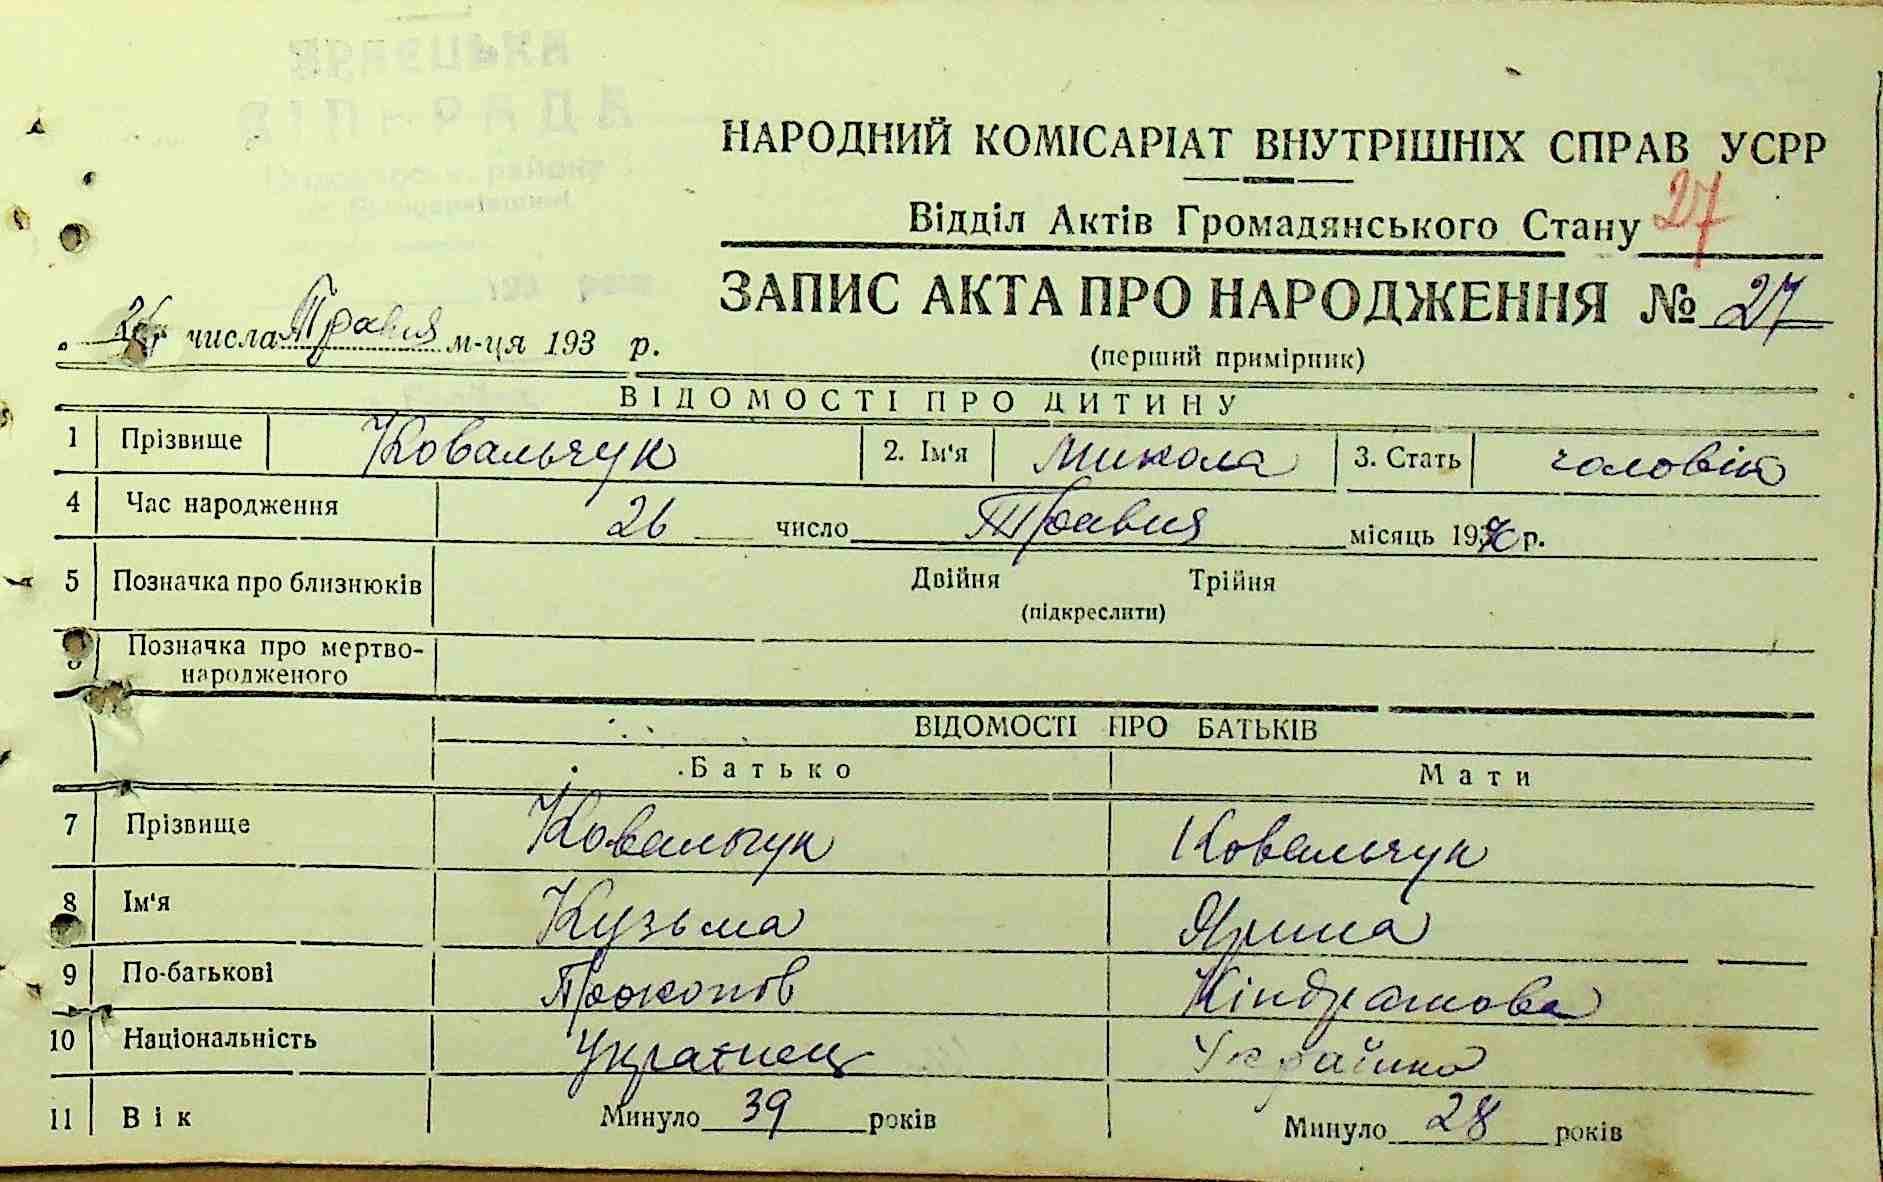 НАРОДНИЙ КОМІСАРІАТ ВНУТРІШНІХ СПРАВ УСРР
Відділ Актів Громадянського Стану 27
ЗАПИС АКТА ПРО НАРОДЖЕННЯ № 27
(перший примірник)
26 числа Травня м-ця 193 р.
ВІДОМОСТІ ПРО ДИТИНУ
1 Прізвище Ковальчук 2. Ім'я Микола 3. Стать чоловік
4 Час народження 26 число Травня місяць 19 р.
5 Позначка про близнюків Двійня Трійня
(підкреслити)
6 Позначка про мертво-
народженого
ВІДОМОСТІ ПРО БАТЬКІВ
Батько Мати
7 Прізвище Ковальчук Ковальчук
8 Ім'я Кузьма Ярина
9 По-батькові Прокопов Кіндратова
10 Національність Українец Українка
11 Вік Минуло 39 років Минуло 28 років